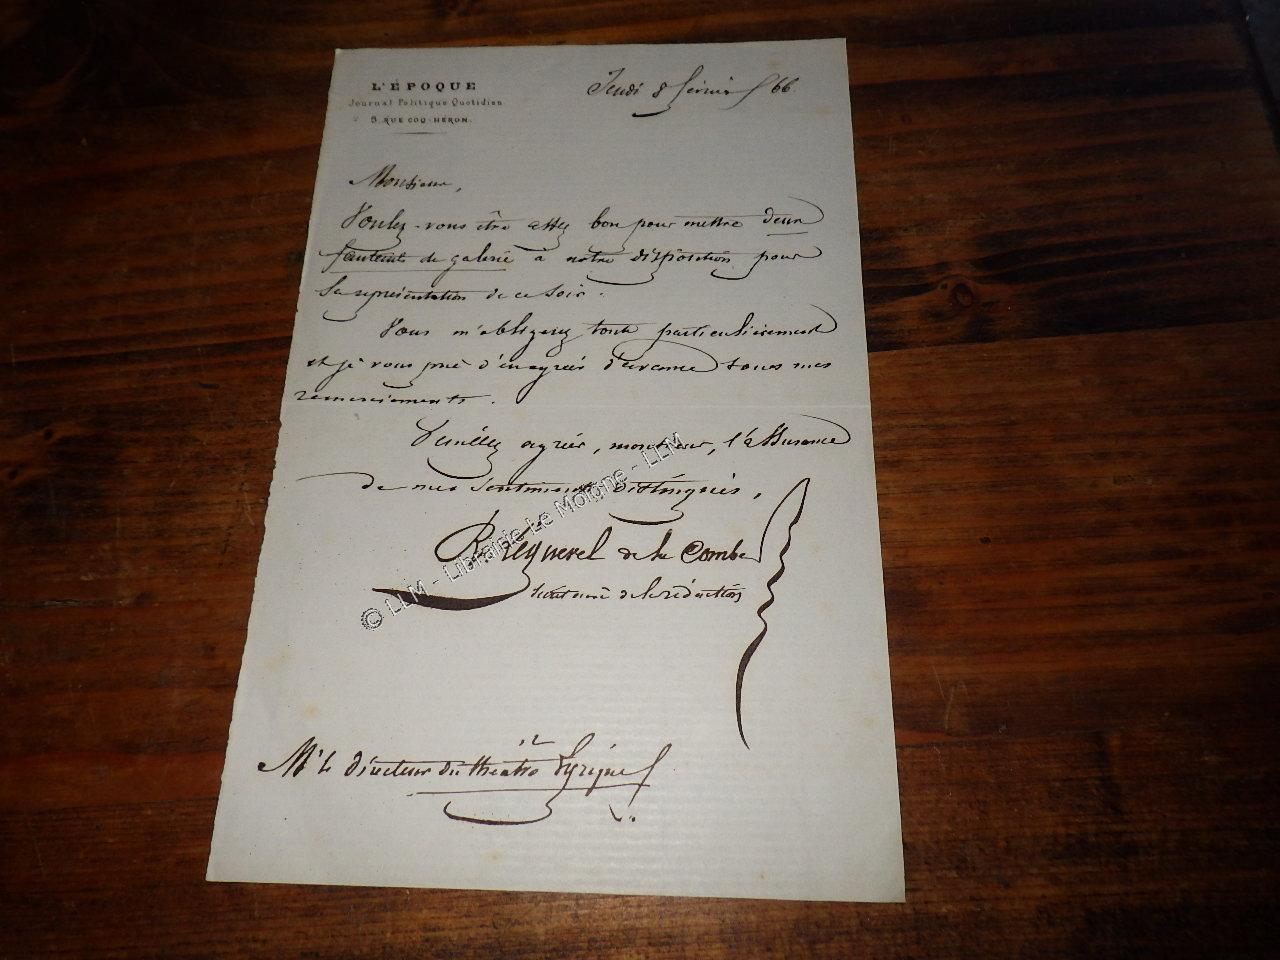 L'ÉPOQUE
Journal Politique Quotidien
9, RUE COQ-HÉRON.
Jeudi 8 février 66
Monsieur,
Voulez-vous être assez bon pour mettre deux
fauteuils de galerie à notre disposition pour
la représentation de ce soir.
Vous m'obligerez tout particulièrement
et je vous prie d'en agréer d'avance tous mes
remerciements.
Veuillez agréer, monsieur, l'assurance
de mes sentiments distingués,
de la Combe
secrétaire de la rédaction
Mr le directeur du théâtre Lyrique
© LLM - Librairie Le Moigne - LLM